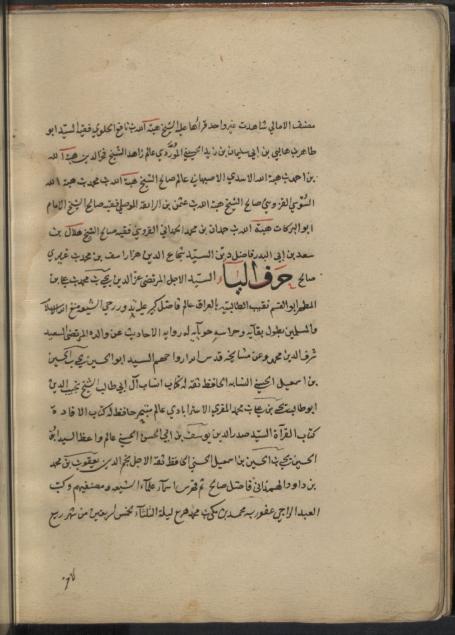 مصنف الامالي شاهدت غير واحد قرأها عليه الشيخ هبة الله بن نافع الحلوي فقيه السيد ابو
طاهر بن هاني بن ابي سليمان بن زيد الحسيني عالم زاهد الشيخ فخر الدين هبة الله
بن احمد بن هبة الله الاسدي الاصبهاني عالم صالح الشيخ هبة الله بن محمد بن هبة الله
السوسي القزويني صالح الشيخ هبة الله بن عثمن بن الموصلي فقيه صالح الشيخ الامام
ابو البركات هبة الله بن حمدان بن محمد الحمداني القزويني فقيه صالح الشيخ هلال بن
سعد بن ابي البدر فاضل دين السيد شجاع الدين هزارأسف بن محمد بن عزيزي
صالح حرف اليآء السيد الاجل المرتضى عز الدين يحيى بن محمد بن علي بن
المطهر ابو القسم نقيب الطالبية بالعراق عالم فاضل كبير عليه تدور رحى الشيعة متع الله الاسلام
والمسلمين بطول بقآئه وحراسة حوبآئه له رواية الاحاديث عن والده المرتضى السعيد
شرف الدين محمد وعن مشايخه قدس ارواحهم السيد ابو الحسين يحيى بن الحسين
بن اسمعيل الحسني النسابة الحافظ ثقة له كتاب انساب آل ابي طالب الشيخ نجيب الدين
ابو طالب يحيى بن علي بن محمد المقري الاسترابادي عالم متبحر حافظ له كتب الافادة
كتاب القرآة السيد صدر الدين يوسف بن ابي الحسن الحسيني عالم واعظ السيد ابو
الحسين يحيى بن الحسين بن اسمعيل الحسني الحافظ ثقة الاجل نجم الدين يعقوب بن محمد
بن داود الهمداني فاضل صالح تم فهرس اسمآء علمآء الشيعة ومصنفيهم وكتب
العبد الراجي عفو ربه محمد بن مكي بن محمد ليلة الثلثآء لخمس اربعين من شهر ربيع